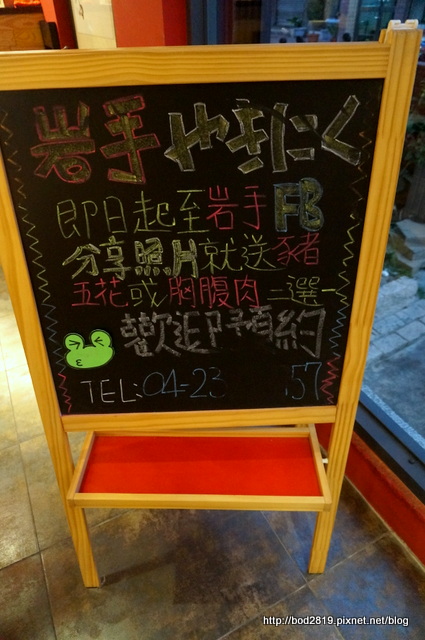 岩手やきにく
即日起至岩手FB
分享照片就送豬
五花或胸腹肉二選一
歡迎預約
TEL:04-23 57
http://bod2819.pixnet.net/blog